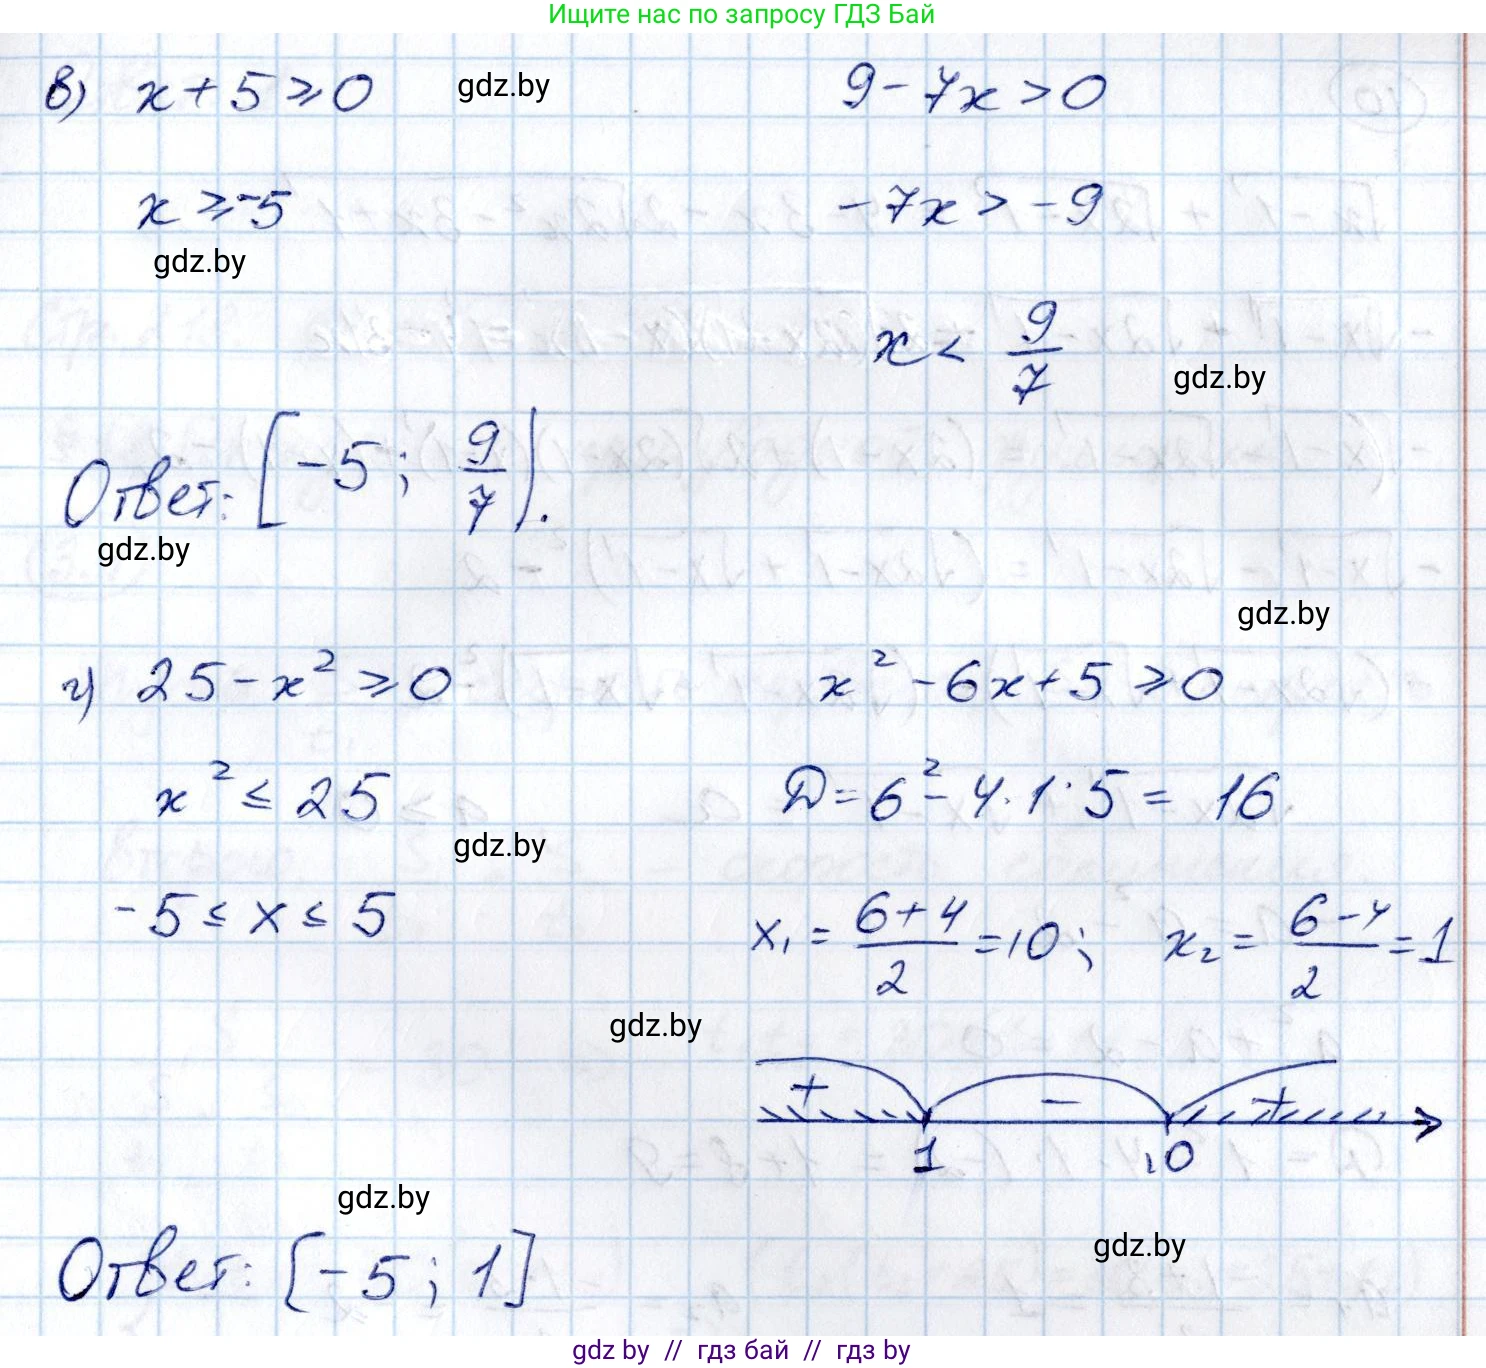 Ищите нас по запросу ГДЗ Бай
в) x + 5 ⩾ 0 gdz.by 9 - 7x > 0
x ⩾ -5 -7x > -9
gdz.by
x < 9/7 gdz.by
Ответ: [-5; 9/7).
gdz.by
gdz.by
г) 25 - x² ⩾ 0 x² - 6x + 5 ⩾ 0
x² ≤ 25 D = 6² - 4·1·5 = 16
gdz.by
-5 ≤ x ≤ 5 x₁ = (6+4)/2 = 10; x₂ = (6-4)/2 = 1
gdz.by
+ - +
1 10
gdz.by
gdz.by
Ответ: [-5; 1]
gdz by // гдз бай // gdz by